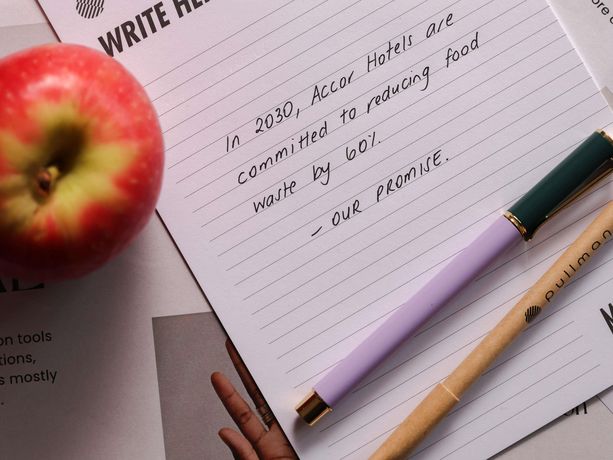 WRITE HE
In 2030, Accor Hotels are
committed to reducing food
waste by 60%.
- OUR PROMISE.
pullman
on tools
tions,
s mostly
.